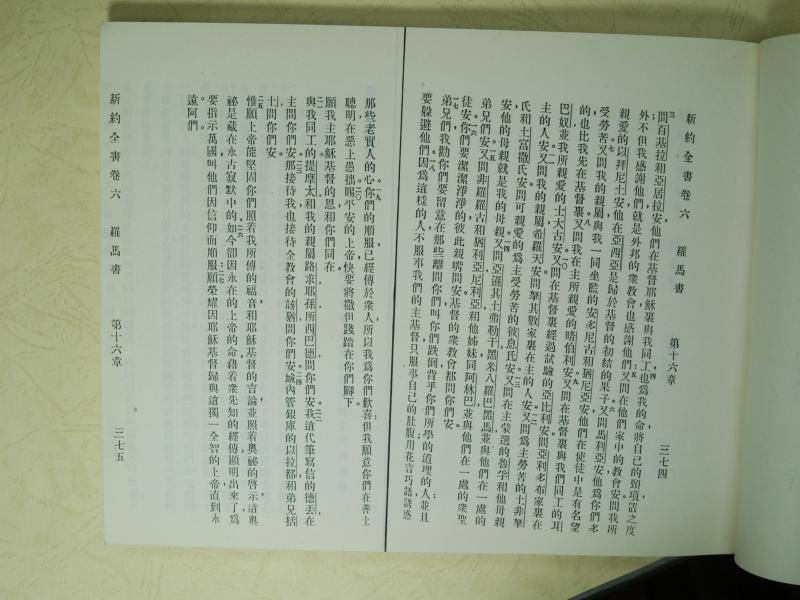 新約全書卷六　羅馬書　第十六章　三七四
三問百基拉和亞居拉安他們在基督耶穌裏與我同工也爲我的命將自己的頸項置之度
外不但我感謝他們就是外邦的衆教會也感謝他們又問在他們家中的教會安問我所
親愛的以拜尼土安他在亞西亞是歸於基督的初結的果子又問馬利亞安他爲你們多
受勞苦又問我的親屬與我一同坐監的安多尼古和猶尼亞安他們在使徒中是有名望
的也比我先在基督裏又問我在主所親愛的暗伯利安又問在基督裏與我們同工的耳
巴奴並我所親愛的士大古安又問在基督裏經過試驗的亞比利安問亞利多布家裏在
主的人安又問我的親屬希羅天安問拏其數家裏在主的人安又問爲主受勞苦的士非拏
氏和土富撒氏安問可親愛的爲主受勞苦的彼息氏安又問在主蒙選的魯孚和他母親
安他的母親就是我的母親又問亞遜其土弗勒干黑米八羅巴黑馬並與他們在一處的
弟兄們安又問非羅羅古和猶利亞尼利亞和他姊妹同阿林巴並與他們在一處的衆聖
徒安你們要潔潔淨淨的彼此親嘴問安基督的衆教會都問你們安
一七弟兄們我勸你們要留意在那些離間你們叫你們跌倒背乎你們所學的道理的人並且
要躲避他們因爲這樣的人不服事我們的主基督只服事自己的肚腹用花言巧語誘惑
那些老實人的心你們的順服已經傳於衆人所以我爲你們歡喜但我願意你們在善上
聰明在惡上愚拙賜平安的上帝快要將撒但踐踏在你們腳下
願我主耶穌基督的恩和你們同在
二一與我同工的提摩太和我的親屬路求耶孫所西巴德問你們安我這代筆寫信的德丟在
主問你們安那接待我也接待全教會的該猶問你們安城內管銀庫的以拉都和弟兄括
土問你們安
二五惟願上帝能堅固你們照着我所傳的福音和耶穌基督的言論並照着奧祕的啓示這奧
祕是藏在永古寂默中的如今卻因永在的上帝的命藉着衆先知的經傳顯明出來了爲
要指示萬國叫他們因信仰而順服願榮耀因耶穌基督歸與這獨一全智的上帝直到永
遠阿們
新約全書卷六　羅馬書　第十六章　三七五